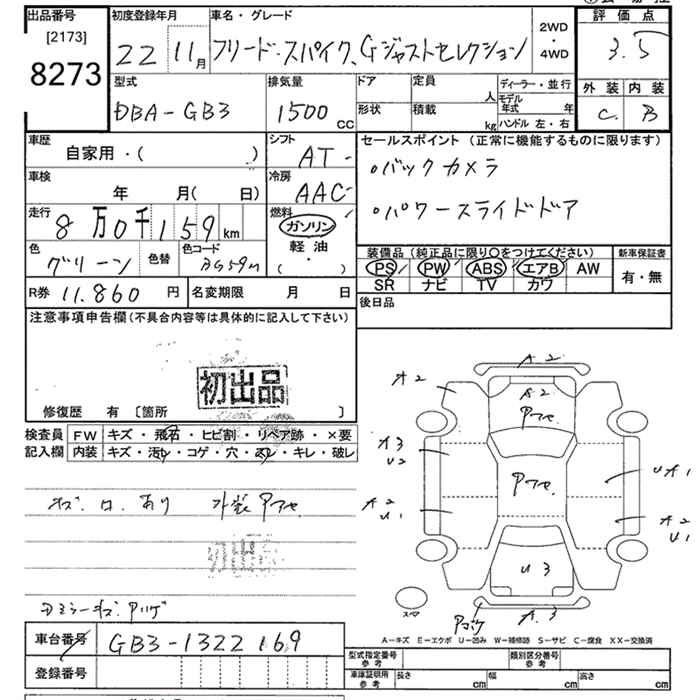 出品番号
[2173]
8273
初度登録年月
22 11月
車名・グレード
フリード・スパイク、Gジャストセレクション
2WD
・
4WD
評価点
3.5
型式
DBA-GB3
排気量
1500 CC
ドア
形状
定員
人
積載
kg
ディーラー・並行
モデル
年式 年
ハンドル 左・右
外装 内装
C B
車歴
自家用・( )
シフト
AT
セールスポイント(正常に機能するものに限ります)
・バックカメラ
・パワースライドドア
車検
年 月( 日)
冷房
AAC
走行
8万0千159 km
燃料
ガソリン
軽油
( ・ )
色
グリーン
色替
色コード
BG59M
装備品(純正品に限り○をつけてください)
PS PW ABS エアB AW
SR ナビ TV カワ
新車保証書
有・無
R券 11.860 円
名変期限 月 日
後日品
注意事項申告欄(不具合内容等は具体的に記入して下さい)
初出品
修復歴 有 〔箇所 〕
検査員
記入欄
FW キズ・飛石・ヒビ割・リペア跡・×要
内装 キズ・汚れ・コゲ・穴・スレ・キレ・破レ
キズ.凹.あり 外装アセ
初出品
A2
A2
A2
アセ
A3
U2
アセ
UA1
A2
U1
A2
U1
U3
A3
スペア
A-キズ E-エクボ U-凹み W-補修跡 S-サビ C-腐食 XX-交換済
車台番号
GB3-1322169
登録番号
型式指定番号
参考
類別区分番号
参考
車庫証明用
参考
長さ cm
幅 cm
高さ cm